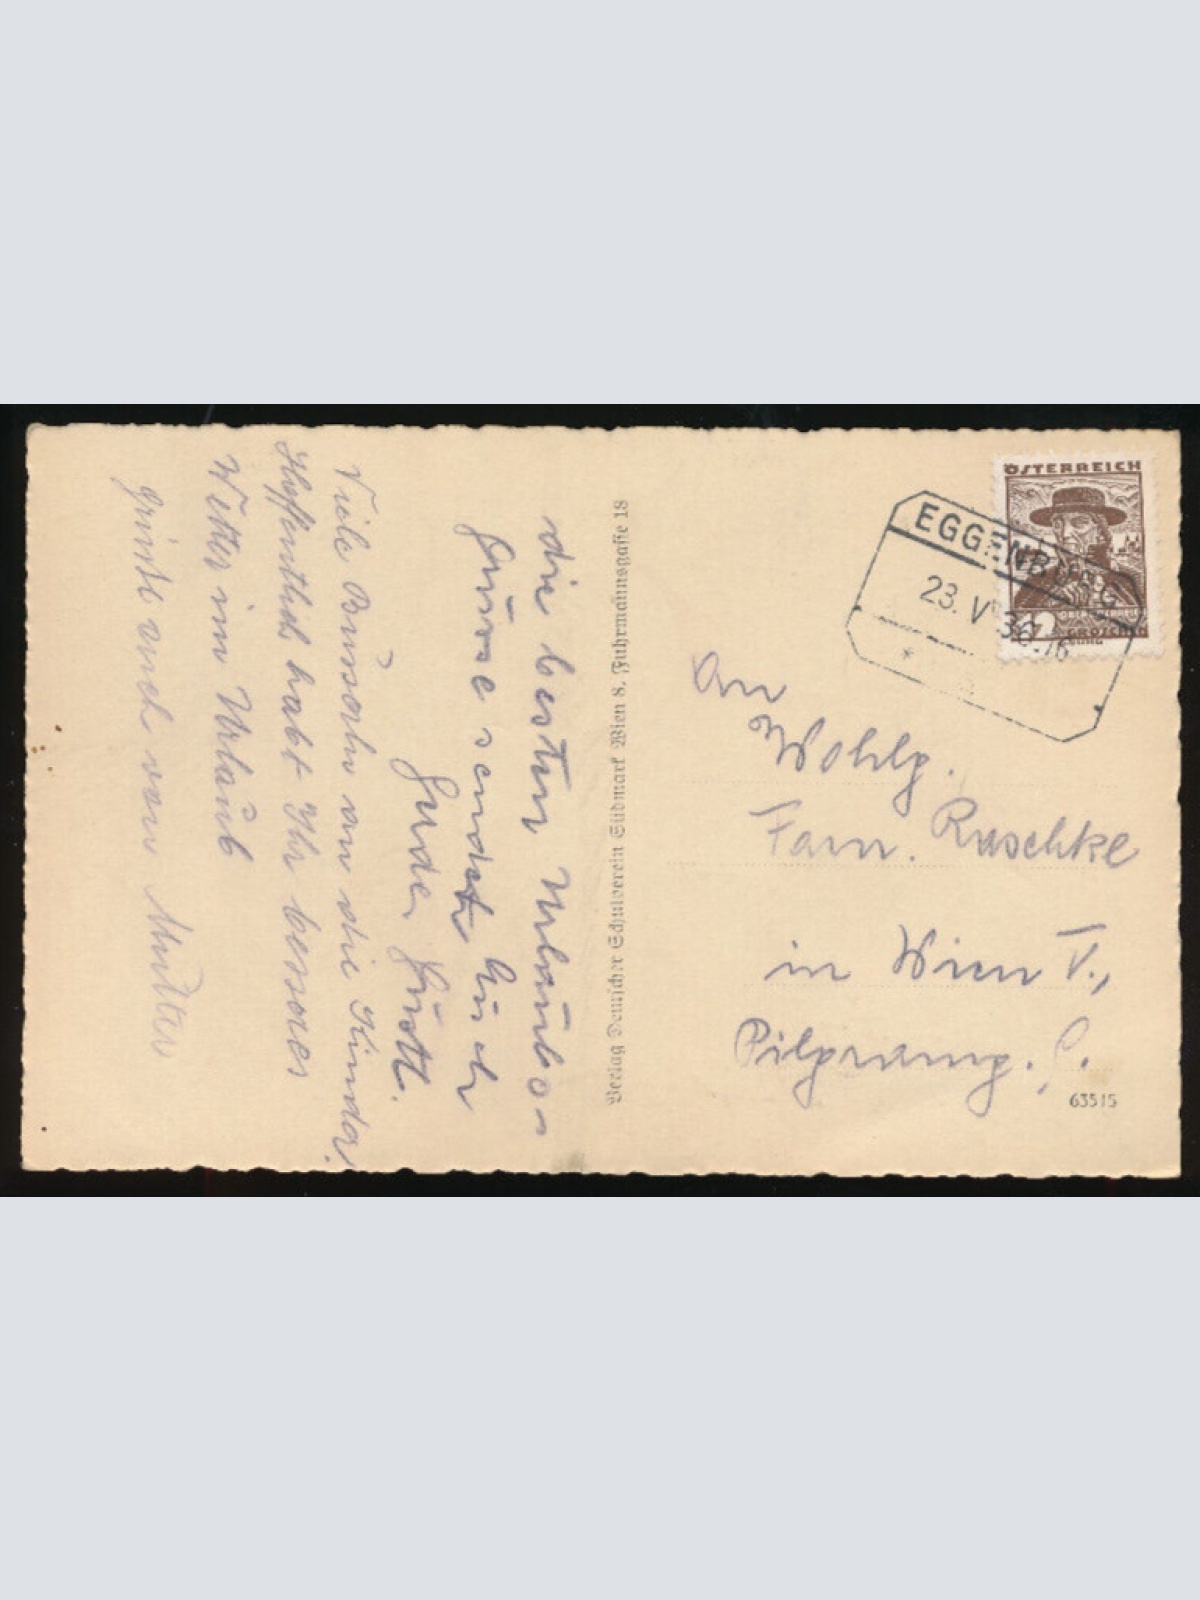 die besten Urlaubs-
grüsse sendet Euch
Viele Busserln an die Kinder.
Hoffentlich habt Ihr besseres
Wetter im Urlaub
grüsst euch von Mutter
Verlag Deutscher Schulverein Südmark Wien 8. Fuhrmannsgasse 18
ÖSTERREICH
GROSCHEN
EGGENBURG
23. V 36.16
*
An
Wohlg.
Fam. Ruschke
in Wien V.,
Pilgramg.
63515